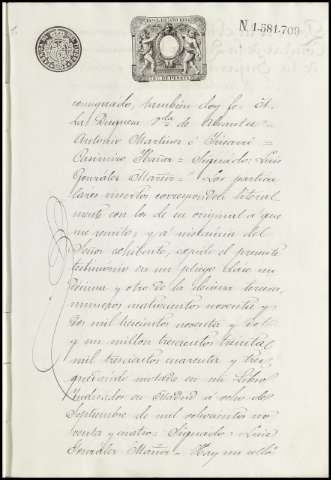 N. 1.581.709
consignado, tambien doy fe = M.
La Duquesa V.da de Abrantes =
Antonio Martinez é
Casimiro = Signado = Luis
Gonzalez Martin = Los particu
lares insertos corresponden literal
mente con los de su original a que
me remito, y a instancia del
Señor exhibente, expido el presente
testimonio en un pliego clase un
decima y otro de la decima tercera,
numeros noventa y
dos mil trescientos noventa y dos
y un millon trescientos treinta
mil trescientos cuarenta y tres,
quedando notado en mi Libro
Indicador en Madrid a ocho de
Septiembre de mil ochocientos no
venta y cuatro = Signado = Luis
Gonzalez Martin = Hay un sello